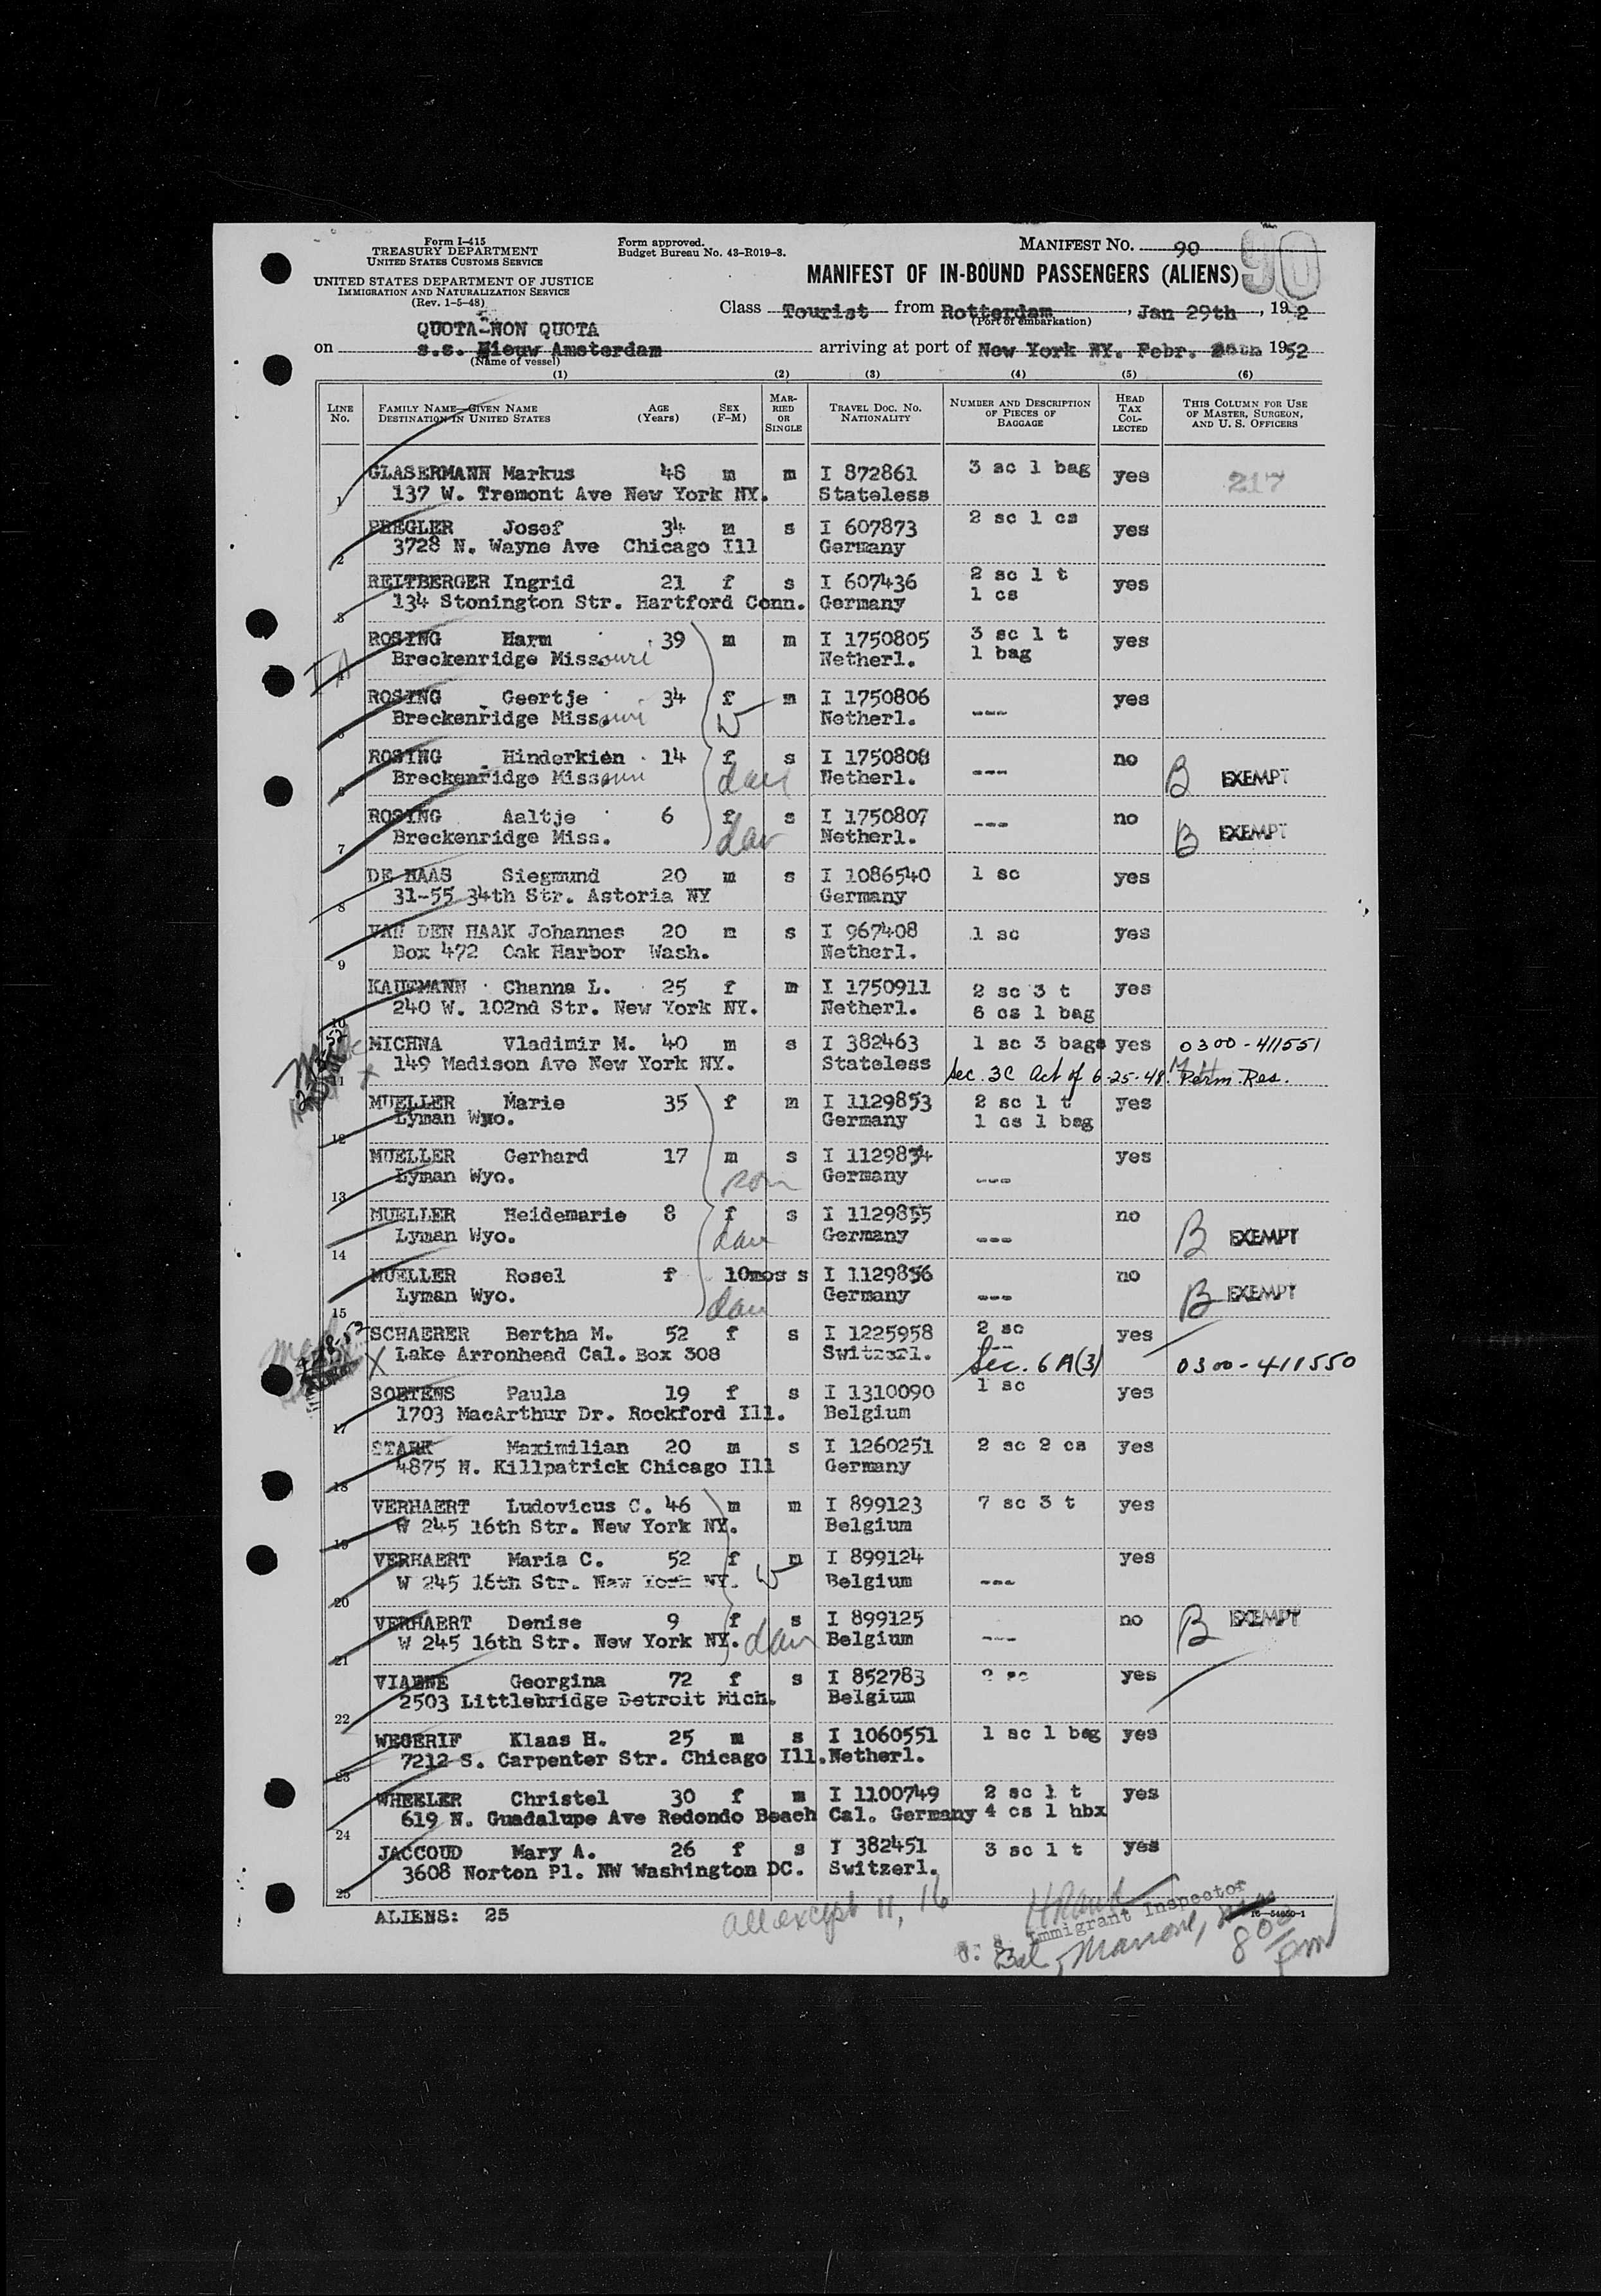 Form I-415
TREASURY DEPARTMENT
UNITED STATES CUSTOMS SERVICE
UNITED STATES DEPARTMENT OF JUSTICE
IMMIGRATION AND NATURALIZATION SERVICE
(Rev. 1-5-48)
Form approved.
Budget Bureau No. 43-R019-3.
MANIFEST NO. 90
90
MANIFEST OF IN-BOUND PASSENGERS (ALIENS)
Class Tourist from Rotterdam, Jan 29th, 1952
(Port of embarkation)
QUOTA-NON QUOTA
on s.s. Nieuw Amsterdam arriving at port of New York NY. Febr. 1952
(Name of vessel)
(1) (2) (3) (4) (5) (6)
LINE NO.
FAMILY NAME—GIVEN NAME
DESTINATION IN UNITED STATES
AGE (Years)
SEX (F-M)
MARRIED OR SINGLE
TRAVEL DOC. NO.
NATIONALITY
NUMBER AND DESCRIPTION OF PIECES OF BAGGAGE
HEAD TAX COLLECTED
THIS COLUMN FOR USE OF MASTER, SURGEON, AND U. S. OFFICERS
GLASERMANN Markus 48 m m I 872861 3 sc 1 bag yes 217
1 137 W. Tremont Ave New York NY. Stateless
PREGLER Josef 34 m s I 607873 2 sc 1 cs yes
2 3728 N. Wayne Ave Chicago Ill Germany
REITBERGER Ingrid 21 f s I 607436 2 sc 1 t yes
3 134 Stonington Str. Hartford Conn. Germany 1 cs
ROSING Harm 39 m m I 1750805 3 sc 1 t yes
Breckenridge Missouri Netherl. 1 bag
ROSING Geertje 34 f m I 1750806 --- yes
5 Breckenridge Missouri W Netherl.
ROSING Hinderkien 14 f s I 1750808 --- no
6 Breckenridge Missouri dau Netherl. B EXEMPT
ROSING Aaltje 6 f s I 1750807 --- no
7 Breckenridge Miss. dau Netherl. B EXEMPT
DE HAAS Siegmund 20 m s I 1086540 1 sc yes
8 31-55 34th Str. Astoria NY Germany
VAN DEN HAAK Johannes 20 m s I 967408 1 sc yes
9 Box 472 Oak Harbor Wash. Netherl.
KAUFMANN Channa L. 25 f m I 1750911 2 sc 3 t yes
10 240 W. 102nd Str. New York NY. Netherl. 6 cs 1 bag
MICHNA Vladimir M. 40 m s I 382463 1 sc 3 bags yes 0300-411551
11 149 Madison Ave New York NY. Stateless Sec. 3C Act of 6-25-48. Perm Res.
MUELLER Marie 35 f m I 1129853 2 sc 1 t yes
12 Lyman Wyo. Germany 1 cs 1 bag
MUELLER Gerhard 17 m s I 1129854 yes
13 Lyman Wyo. son Germany ---
MUELLER Heidemarie 8 f s I 1129855 no
14 Lyman Wyo. dau Germany --- B EXEMPT
MUELLER Rosel f 10mos s I 1129856 no
15 Lyman Wyo. dau Germany --- B EXEMPT
SCHAERER Bertha M. 52 f s I 1225958 2 sc yes
X Lake Arronhead Cal. Box 308 Switzerl. Sec. 6A(3) 0300-411550
SOETENS Paula 19 f s I 1310090 1 sc yes
17 1703 MacArthur Dr. Rockford Ill. Belgium
STARK Maximilian 20 m s I 1260251 2 sc 2 cs yes
18 4875 N. Killpatrick Chicago Ill Germany
VERHAERT Ludovicus C. 46 m m I 899123 7 sc 3 t yes
19 W 245 16th Str. New York NY. Belgium
VERHAERT Maria C. 52 f m I 899124 yes
20 W 245 16th Str. New York NY. W Belgium ---
VERHAERT Denise 9 f s I 899125 no B EXEMPT
21 W 245 16th Str. New York NY. dau Belgium ---
VIAENE Georgina 72 f s I 852783 2 sc yes
22 2503 Littlebridge Detroit Mich. Belgium
WEGERIF Klaas H. 25 m s I 1060551 1 sc 1 bag yes
23 7212 S. Carpenter Str. Chicago Ill. Netherl.
WHEELER Christel 30 f m I 1100749 2 sc 1 t yes
24 619 N. Guadalupe Ave Redondo Beach Cal. Germany 4 cs 1 hbx
JACCOUD Mary A. 26 f s I 382451 3 sc 1 t yes
25 3608 Norton Pl. NW Washington DC. Switzerl.
ALIENS: 25
all except 11, 16
Immigrant Inspector
16-54650-1
800 pm